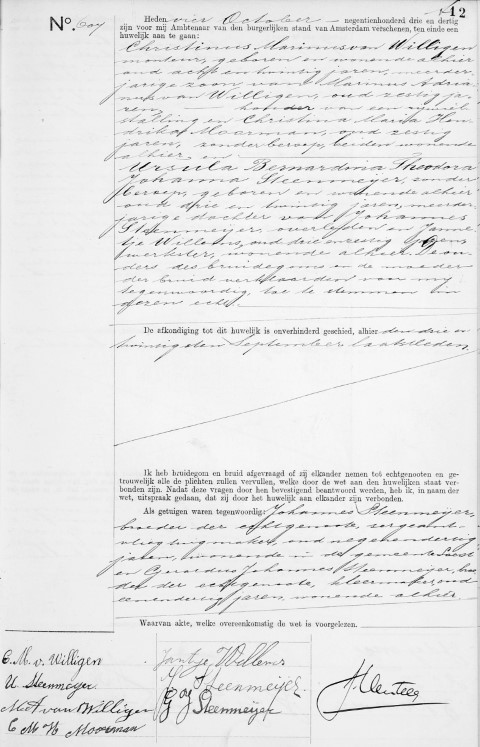 12
No. 
Heden vier October negentienhonderd drie en dertig
zijn voor mij Ambtenaar van den burgerlijken stand van Amsterdam verschenen, ten einde een
huwelijk aan te gaan:
Christinus Marinus van Willigen
monteur, geboren en wonende alhier
oud acht en twintig jaren, meerder-
jarige zoon van Marinus Adria-
nus van Willigen, oud zestig ja-
ren, houder van een rijwiel
stalling en Christina Maria Hen-
drika Moorman, oud zestig
jaren, zonder beroep, beiden wonende
alhier en
Ursula Bernardina Theodora
Johanna Steenmeijer, zonder
beroep, geboren en wonende alhier
oud drie en twintig jaren, meerder-
jarige dochter van Johannes
Steenmeijer, overleden en Jannetje
Willems, oud drie en zestig jaren,
werkster, wonende alhier. De ou-
ders des bruidegoms en de moeder
der bruid verklaarden voor mij
tegenwoordig, toe te stemmen in
dezen echt.
De afkondiging tot dit huwelijk is onverhinderd geschied, alhier den drie en
twintigsten September laatstleden.
Ik heb bruidegom en bruid afgevraagd of zij elkander nemen tot echtgenooten en ge-
trouwelijk alle de plichten zullen vervullen, welke door de wet aan den huwelijken staat ver-
bonden zijn. Nadat deze vragen door hen bevestigend beantwoord werden, heb ik, in naam der
wet, uitspraak gedaan, dat zij door het huwelijk aan elkander zijn verbonden.
Als getuigen waren tegenwoordig: Johannes Steenmeijer,
broeder der echtgenoote, sergeant-
vliegtuigmaker, oud negen en dertig
jaren, wonende in de gemeente Soest
en Gerardus Johannes Steenmeijer, broe-
der der echtgenoote, kleermaker, oud
een en dertig jaren, wonende alhier.
Waarvan akte, welke overeenkomstig de wet is voorgelezen.
C. M. v. Willigen
U Steenmeijer
M A van Willigen
C M H Moorman
Jantje Willems
J Steenmeijer
G J Steenmeijer